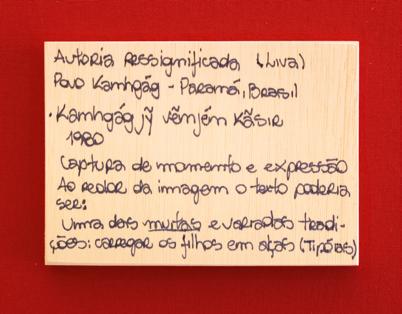 Autoria Ressignificada (Liva)
Povo Kamhgág - Paramá, Brasil
· Kamhgág jỹ vẽmjén Kãsir
1980
Captura de momemto e expressão
Ao redor da imagem o texto poderia
ser:
Uma das muitas e variadas tradi-
ções: carregar os filhos em alças (Tipóias)